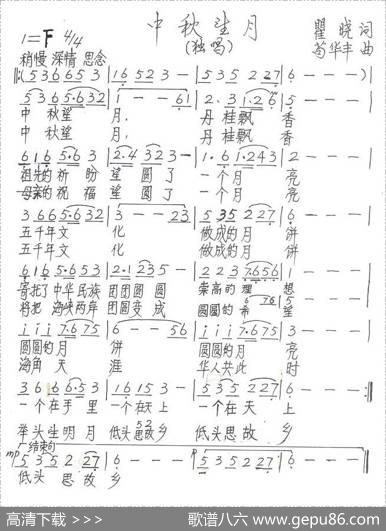 中秋望月
(独唱)
瞿 晓 词
荀华丰 曲
1=F 4/4
稍慢 深情 思念
‖:(5 3 6 6 5 3 | 1 6 5 2 3 - | 5 3 5 2 2 7 | 6 - - - ) |
5 3 6 5·6 3 2 | 1 - - 6 1 | 2·3 1·2 6 | 5 - - - |
中 秋望 月, 丹 桂飘 香
中 秋望 月, 丹 桂飘 香
6 1 6 5·6 3 | 2·4 3 2 3 - | 1·6 1·2 4 3 | 2 - - - |
祖先的祈 盼 望 圆 了 一个月 亮
母亲的祝 福 望 圆 了 一个月 亮
3 6 6 5·6 3 2 | 3 - - 2 3 | 5 3 5 2 2 7 | 6 - - - |
五千年文 化 做成的月 饼
五千年文 化 做成的月 饼
6 1 6 5·6 5 3 | 2·1 2 3 5 - | 2 2 3 7 6 5 6 | 1 - - - |
寄托了中华民族 团团圆 圆 崇高的 理 想
将把 海峡两岸 团圆变 成 圆圆的 希 望
i i i 7·6 7 5 | 6 - - 5 6 | i i i 7·6 7 5 | 3 - - - |
圆圆的月 饼 圆圆的月 亮
海角 天 涯 华人共此 时
3 6 6 6·5 3 | 1 6 1 5 3 - | 5 3 5 2 2 7 | 6 - - - :‖
一个在手 里 一个在天上 一个在天 上
举头望明 月 低头思故乡 低头思故 乡
结束句
mp 5 3 5 2 2 7 | 6 - - - | p 5 3 5 2 2 7 | 6 - - - ‖
低头 思 故 乡
高清下载 >>> 歌谱八六 www.gepu86.com